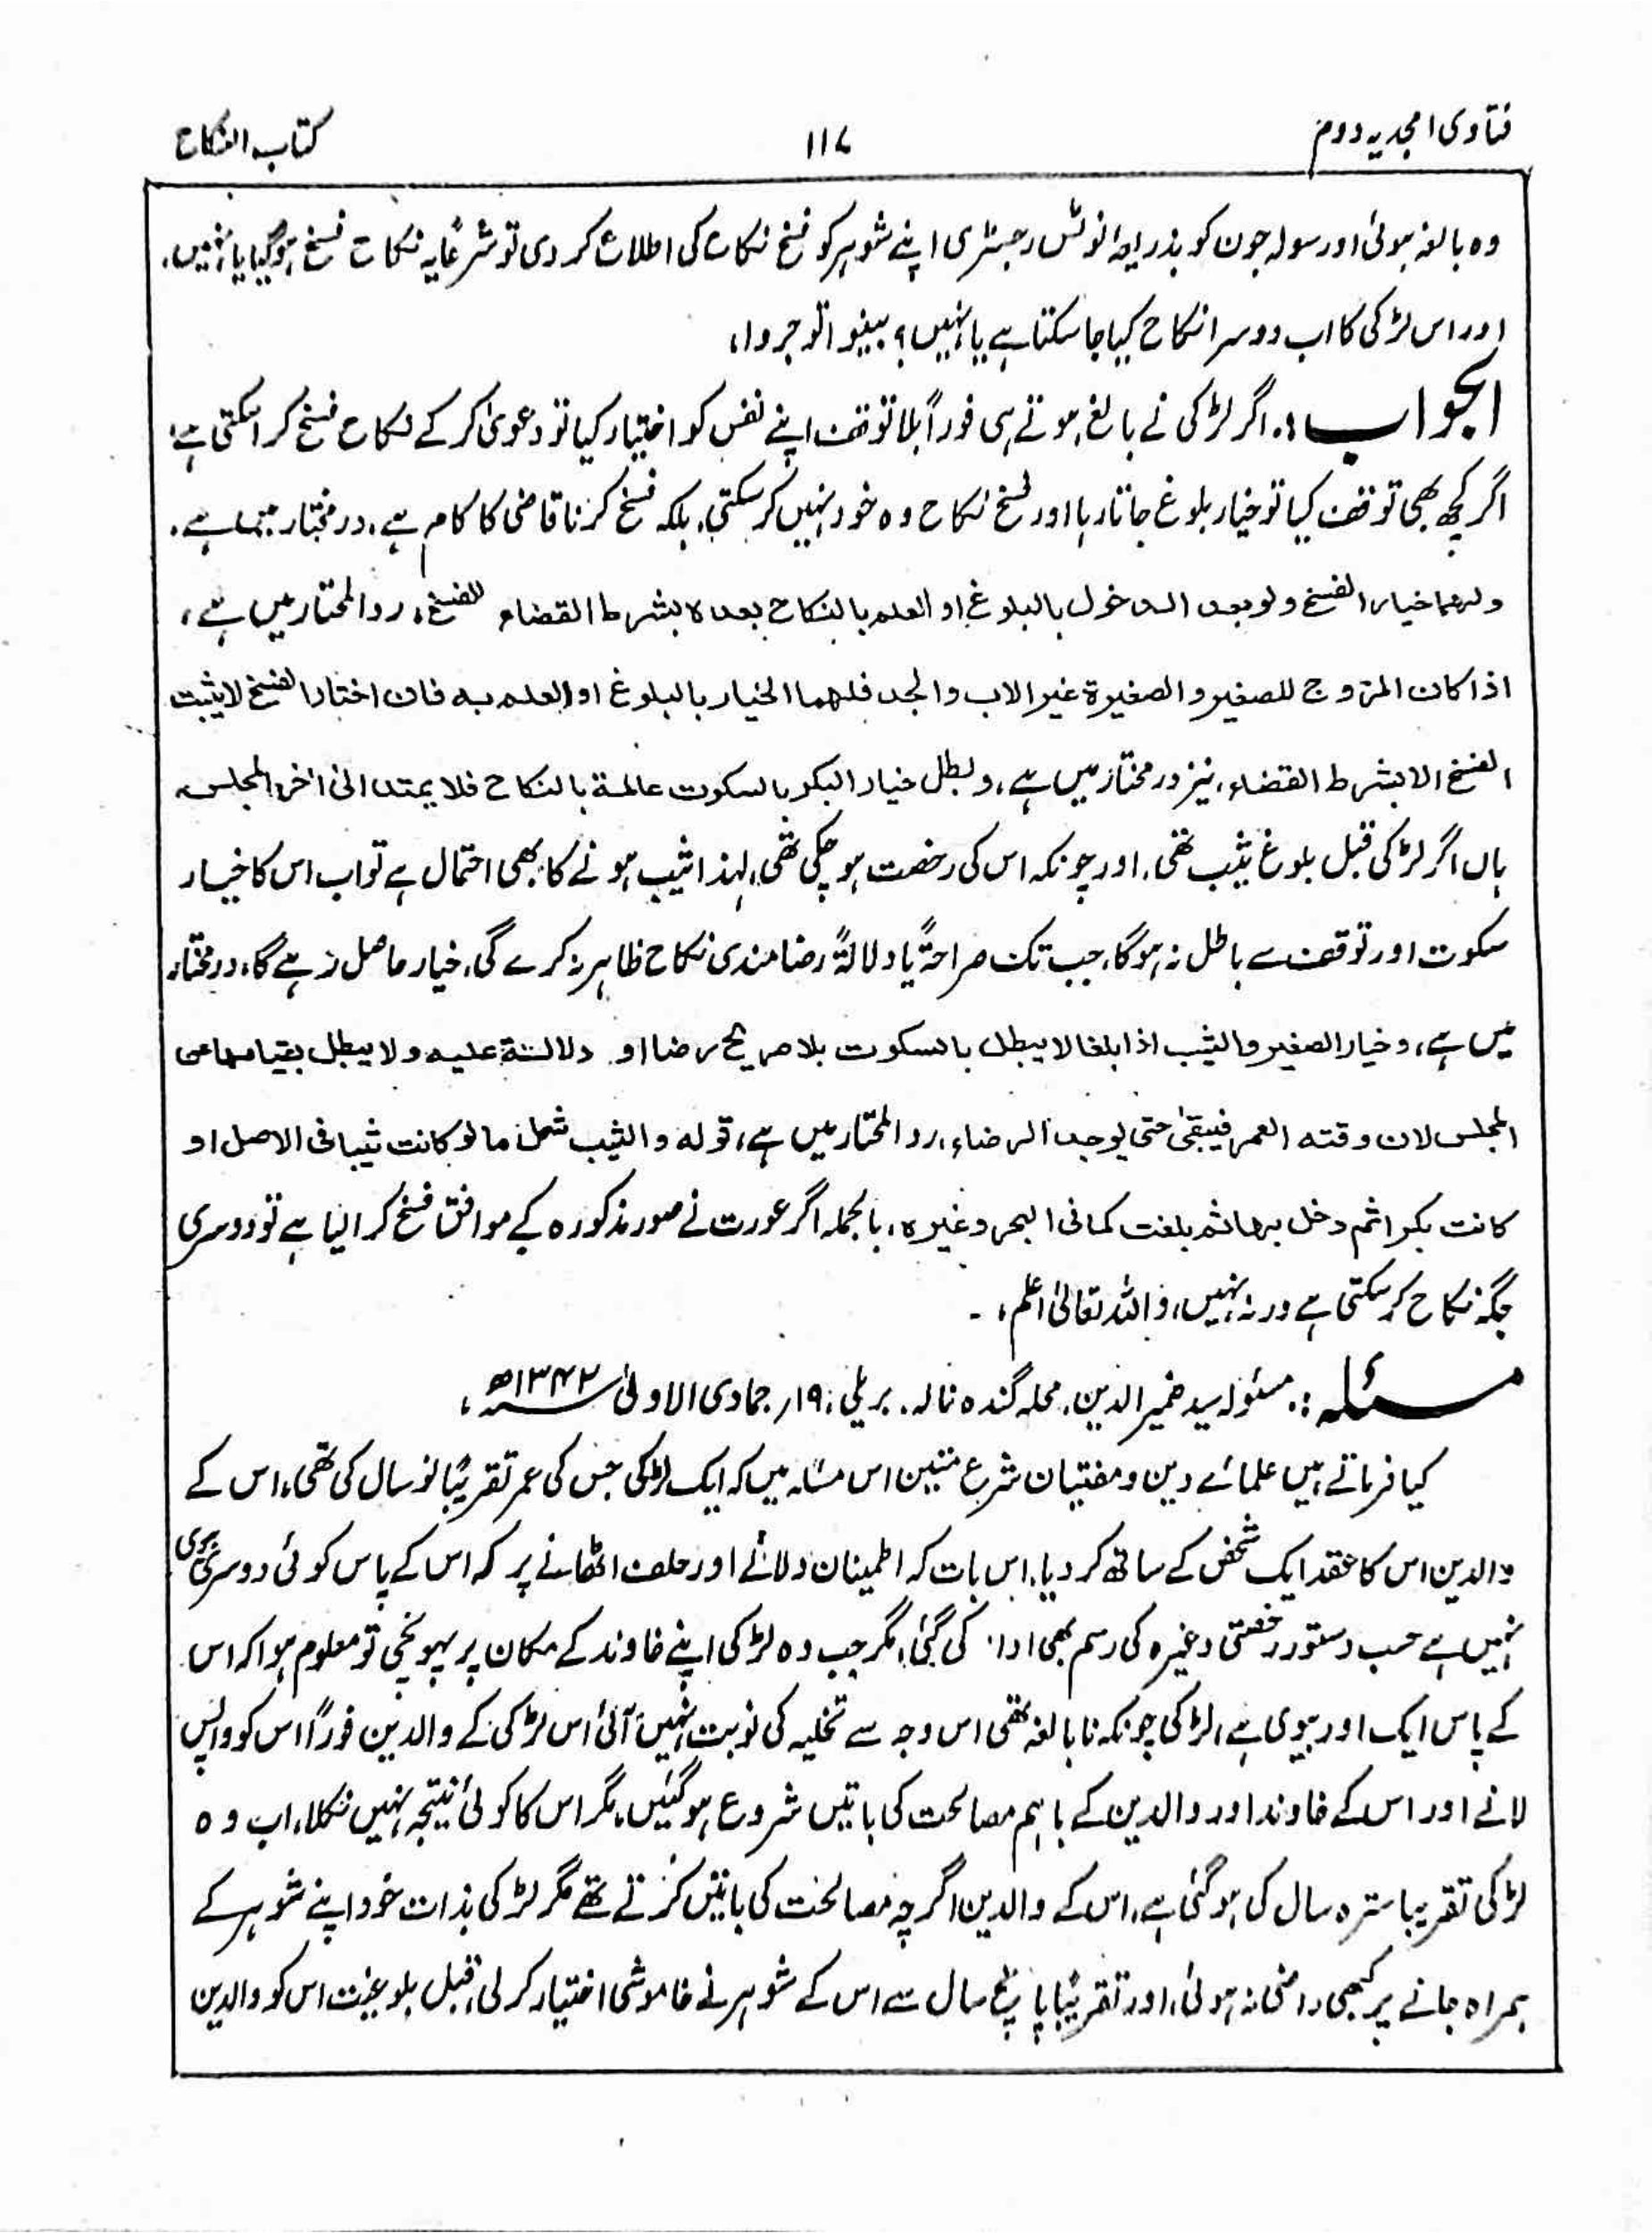 فتاوی امجدیہ دوم
۱۱۷
کتاب النکاح
وہ بالغہ ہوئی اور سولہ جون کو بذریعہ نوٹس رجسٹری اپنے شوہر کو فسخ نکاح کی اطلاع کر دی تو شرعًا یہ نکاح فسخ ہوگیا یا نہیں،
اور اس لڑکی کا اب دوسرا نکاح کیا جا سکتا ہے یا نہیں؟ بینوا توجروا،
الجواب :. اگر لڑکی نے بالغ ہوتے ہی فوراً بلا توقف اپنے نفس کو اختیار کیا تو دعویٰ کر کے نکاح فسخ کرا سکتی ہے،
اگر کچھ بھی توقف کیا تو خیار بلوغ جاتا رہا اور فسخ نکاح وہ خود نہیں کر سکتی، بلکہ فسخ کرنا قاضی کا کام ہے، درمختار میں ہے،
ولہما خیار الفسخ ولو بعد الدخول بالبلوغ او العلم بالنکاح بعدہ بشرط القضاء للفسخ، ردالمحتار میں ہے،
اذا کان المزوج للصغیر والصغیرۃ غیر الاب والجد فلہما الخیار بالبلوغ او العلم بہ فان اختار الفسخ لا یثبت
الفسخ الا بشرط القضاء، نیز درمختار میں ہے، وبطل خیار البکر بالسکوت عالمۃ بالنکاح فلا یمتد الیٰ اٰخر المجلس
ہاں اگر لڑکی قبل بلوغ ثیب تھی، اور چونکہ اس کی رخصت ہو چکی تھی، لہٰذا ثیب ہونے کا بھی احتمال ہے تو اب اس کا خیار
سکوت اور توقف سے باطل نہ ہوگا، جب تک صراحۃً یا دلالۃً رضامندی نکاح ظاہر نہ کرے گی، خیار حاصل رہے گا، درمختار
میں ہے، وخیار الصغیر والثیب اذا بلغا لا یبطل بالسکوت بلا صریح رضا او دلالۃ علیہ ولا یبطل بقیامہما عن
المجلس لان وقتہ العمر فیبقیٰ حتی یوجد الرضاء، ردالمحتار میں ہے، قولہ والثیب شمل ما لو کانت ثیبا فی الاصل او
کانت بکرا ثم دخل بہا ثم بلغت کما فی البحر وغیرہ، بالجملہ اگر عورت نے صور مذکورہ کے موافق فسخ کرا لیا ہے تو دوسری
جگہ نکاح کر سکتی ہے ورنہ نہیں، واللہ تعالیٰ اعلم، ۔
مسئلہ :. مسئولہ سید ضمیر الدین، محلہ گندہ نالہ، بریلی، ۱۹؍ جمادی الاولیٰ ۱۳۴۲ھ،
کیا فرماتے ہیں علمائے دین و مفتیان شرع متین اس مسئلہ میں کہ ایک لڑکی جس کی عمر تقریبًا نو سال کی تھی، اس کے
والدین اس کا عقد ایک شخص کے ساتھ کر دیا، اس بات کہ اطمینان دلانے اور حلف اٹھانے پر کہ اس کے پاس کوئی دوسری بیوی
نہیں ہے حسب دستور رخصتی وغیرہ کی رسم بھی ادا کی گئی، مگر جب وہ لڑکی اپنے خاوند کے مکان پر پہونچی تو معلوم ہوا کہ اس
کے پاس ایک اور بیوی ہے، لڑکی چونکہ نابالغہ تھی اس وجہ سے تخلیہ کی نوبت نہیں آئی اس لڑکی کے والدین فوراً اس کو واپس
لائے اور اس کے خاوند اور والدین کے باہم مصالحت کی باتیں شروع ہو گئیں، مگر اس کا کوئی نتیجہ نہیں نکلا، اب وہ
لڑکی تقریبا سترہ سال کی ہو گئی ہے، اس کے والدین اگرچہ مصالحت کی باتیں کرتے تھے مگر لڑکی بذات خود اپنے شوہر کے
ہمراہ جانے پر کبھی راضی نہ ہوئی، اور تقریبًا پانچ سال سے اس کے شوہر نے خاموشی اختیار کر لی، قبل بلوغیت اس کو والدین